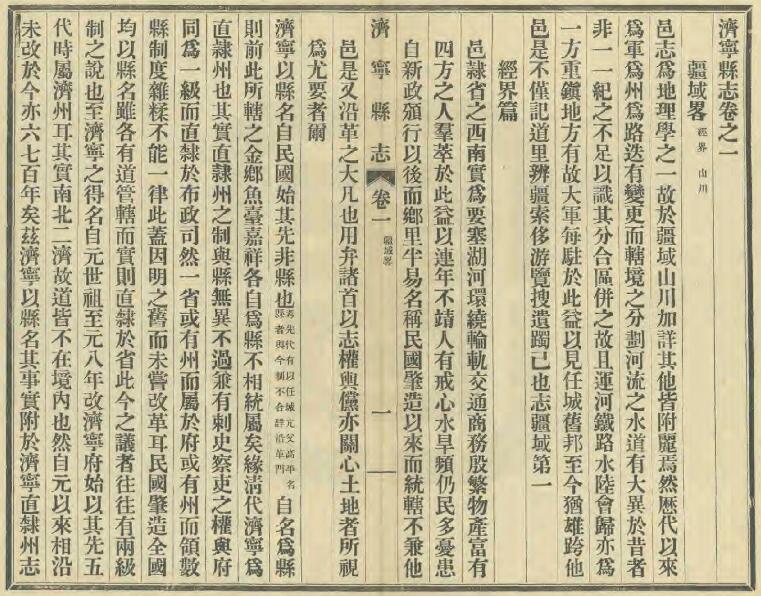 濟寧縣志卷之一
疆域畧 經界 山川
邑志爲地理學之一故於疆域山川加詳其他皆附麗焉然歷代以來
爲軍爲州爲路迭有變更而轄境之分劃河流之水道有大異於昔者
非一一紀之不足以識其分合區併之故且運河鐵路水陸會歸亦爲
一方重鎭地方有故大軍每駐於此益以見任城舊邦至今猶雄跨他
邑是不僅記道里辨疆索侈游覽搜遺躅已也志疆域第一
經界篇
邑隷省之西南實爲要塞湖河環繞輪軌交通商務殷繁物產富有
四方之人羣萃於此益以連年不靖人有戒心水旱頻仍民多憂患
自新政頒行以後而鄉里半易名稱民國肇造以來而統轄不兼他
濟寧縣志 卷一 疆域畧 一
邑是又沿革之大凡也用弁諸首以志權輿儻亦關心土地者所視
爲尤要者爾
濟寧以縣名自民國始其先非縣也
縣者與今制不合詳沿革門
自名爲縣
則前此所轄之金鄉魚臺嘉祥各自爲縣不相統屬矣緣淸代濟寧爲
直隷州也其實直隷州之制與縣無異不過兼有刺史察吏之權與府
同爲一級而直隷於布政司然一省或有州而屬於府或有州而領數
縣制度雜糅不能一律此蓋因明之舊而未嘗改革耳民國肇造全國
均以縣名雖各有道管轄而實則直隷於省此今之議者往往有兩級
制之說也至濟寧之得名自元世祖至元八年改濟寧府始以其先五
代時屬濟州耳其實南北二濟故道皆不在境內也然自元以來相沿
未改於今亦六七百年矣茲濟寧以縣名其事實附於濟寧直隷州志